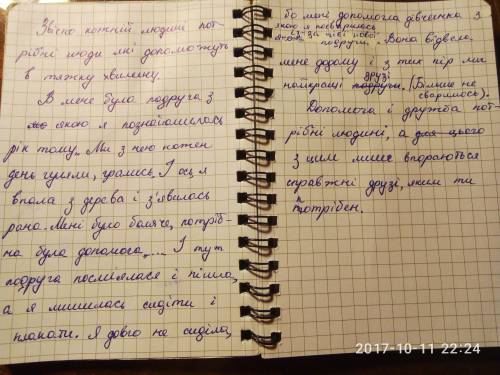 Звісно кожній людині пот-
рібні люди які допоможуть
в тяжку хвилину.
В мене була подруга з
якою я познайомилась
рік тому. Ми з нею кожен
день гуляли, грались. І ось я
впала з дерева і з'явилась
рана. Мені було боляче, потріб-
на була допомога,.... І тут
подруга посміялася і пішла,
а я лишилась сидіти і
плакати. Я довго не сиділа,
бо мені допомогла дівчинка з
якою я посварилась
із-за цієї нової
подруги. Вона відвела
мене додому і з тих пір ми
найкращі подруги. друзі (Більше не
сварились).
Допомога і дружба пот-
рібні людині, а для цього
з цим лише впораються
справжні друзі, яким ти
потрібен.
2017-10-11 22:24